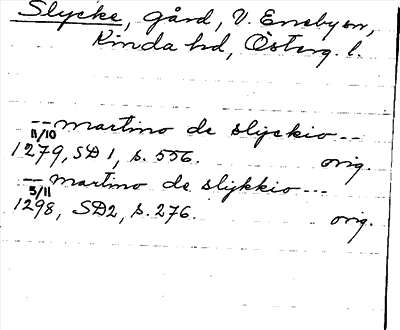 Slycke, gård, V. Eneby sn,
Kinda hd, Österg. l.
-- martino de slyckio ---
11/10
1279, SD 1, s. 556. orig.
-- martino de slykkio ---
5/11
1298, SD2, s. 276. orig.